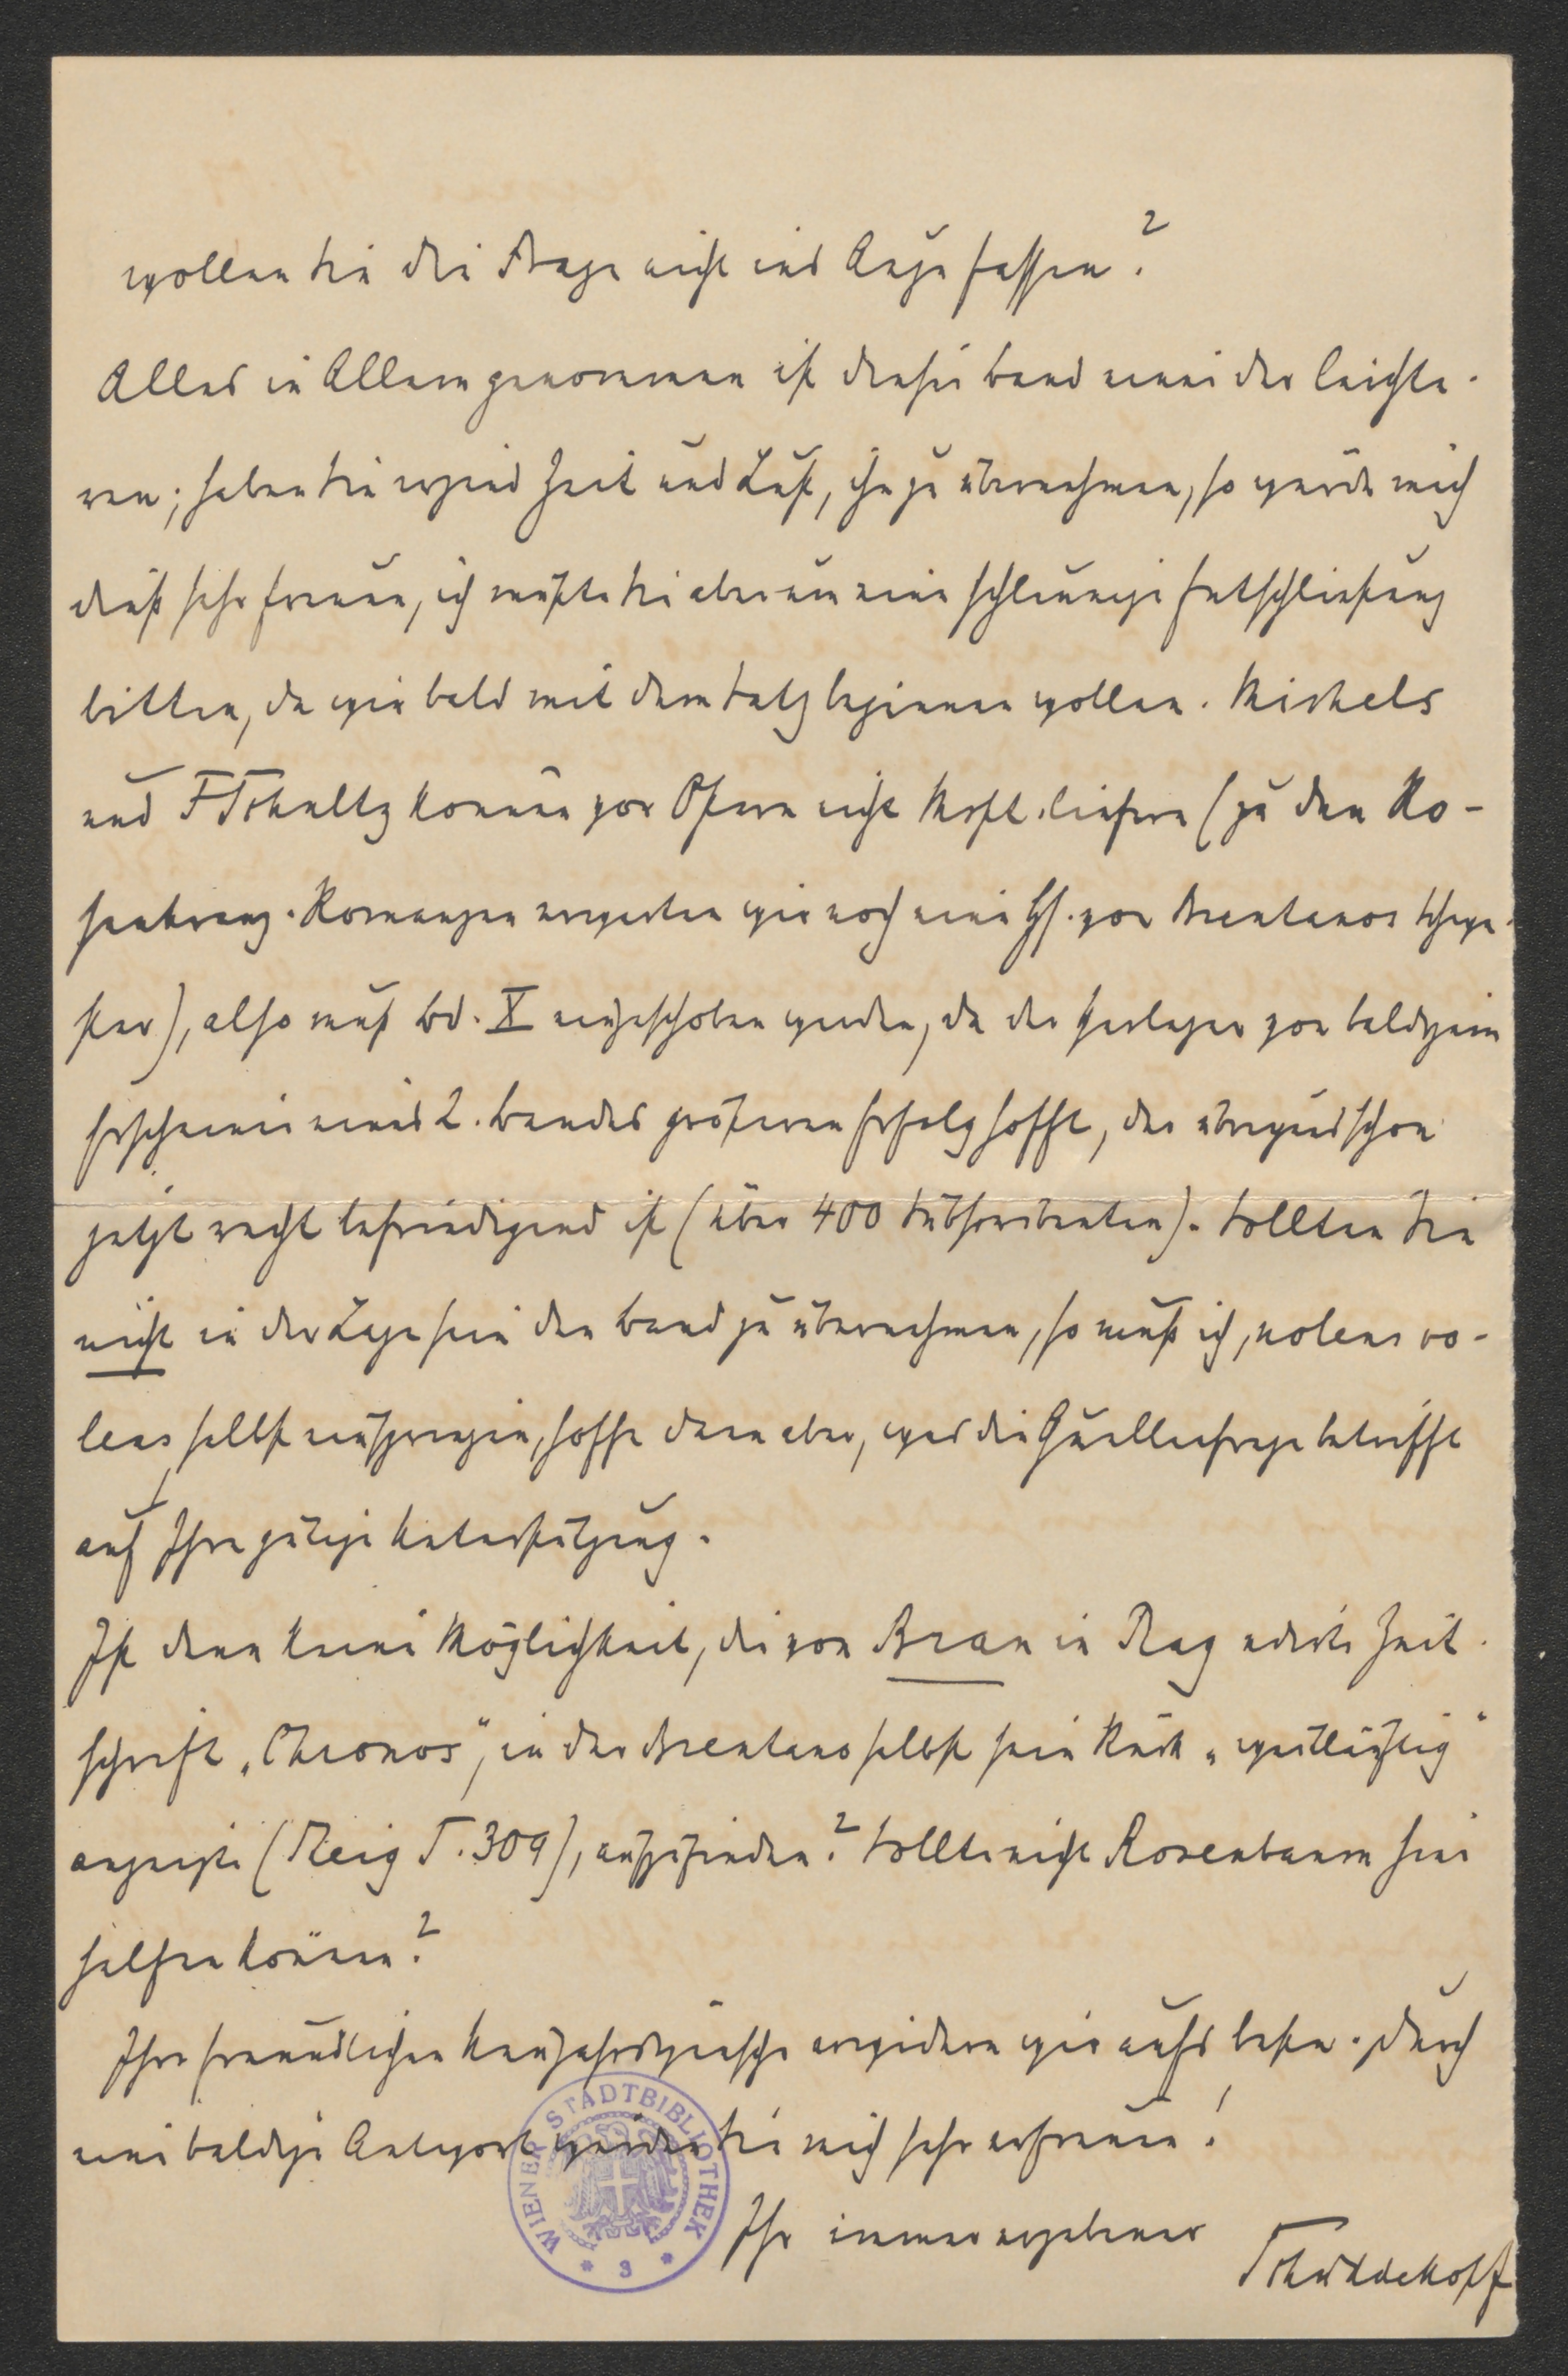 wollen Sie die Frage nicht ins Auge fassen?
Alles in Allem genommen ist dieser Band einer der leichte-
ren; haben Sie irgend Zeit und Lust, ihn zu übernehmen, so würde mich
dieß sehr freuen, ich müßte Sie aber um eine schleunige Entschließung
bitten, da wir bald mit dem Satz beginnen wollen. Michels
und FSchultz können vor Ostern nicht Mspt. liefern (zu den Ro-
senkranz-Romanzen erwarten wir noch eine Hs. von Brentanos Schwe-
ster), also muß Bd. X eingeschoben werden, da der Verleger von baldigem
Erscheinen eines 2. Bandes größeren Erfolg hofft, der übrigens schon
jetzt recht befriedigend ist (über 400 Subscribenten). Sollten Sie
nicht in der Lage sein den Band zu übernehmen, so muß ich, nolens vo-
lens, selbst einspringen, hoffe dann aber, was die Quellenfrage betrifft
auf Ihre gütige Unterstützung.
Ist denn keine Möglichkeit, die von Bran in Prag edirte Zeit-
schrift „Chronos“, in der Brentano selbst sein Stück „weitläuftig“
anzeigte (Steig S. 309), aufzufinden? Sollte nicht Rosenbaum hier
helfen können?
Ihre freundlichen Neujahrswünsche erwidern wir aufs beste. Durch
eine baldige Antwort würden Sie mich sehr erfreuen!
Ihr immer ergebener
Schüddekopf
WIENER STADTBIBLIOTHEK